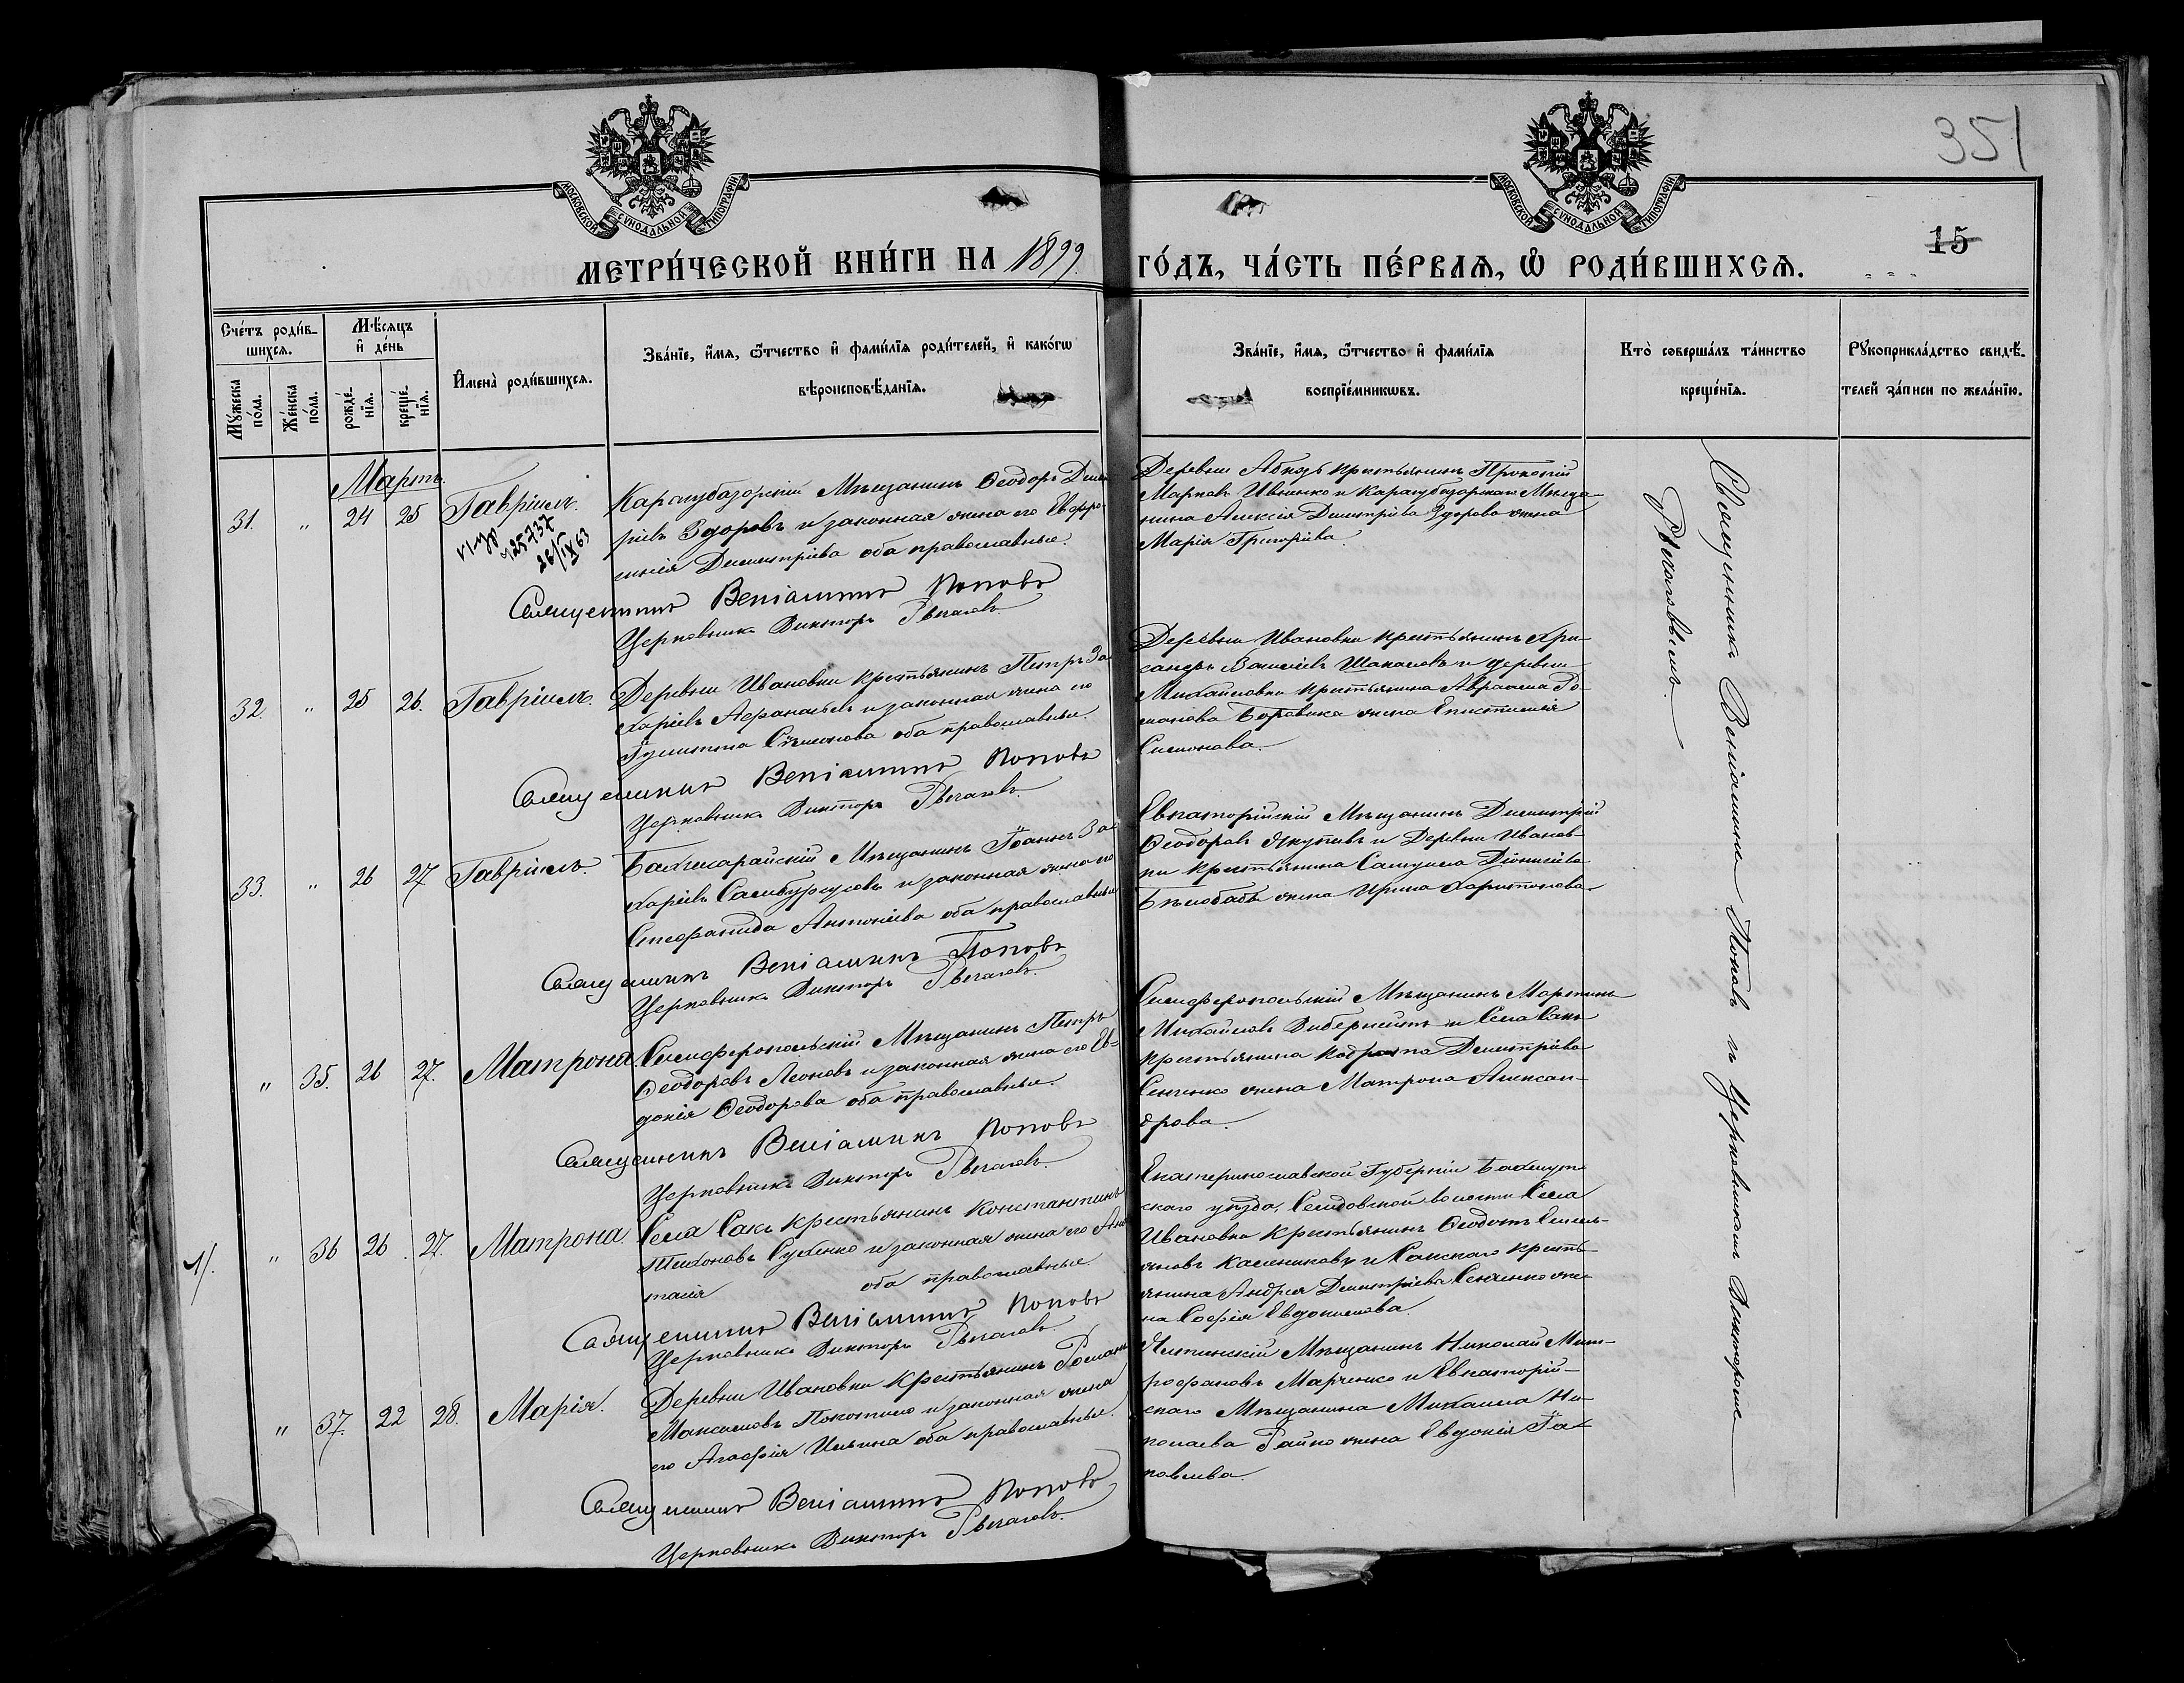 351
15
МОСКОВСКОЙ СУНОДАЛЬНОЙ ТИПОГРАФІИ
МОСКОВСКОЙ СУНОДАЛЬНОЙ ТИПОГРАФІИ
МЕТРИ́ЧЕСКОЙ КНИ́ГИ НА 1899 ГО́ДЪ, ЧА́СТЬ ПЕ́РВАѦ, Ѡ РОДИ́ВШИХСѦ.
Сче́тъ роди́в-
шихсѧ.
Му́жеска по́ла.
Же́нска по́ла.
Мѣ́сѧцъ
и҆ де́нь
рожде́-
нїѧ.
креще́-
нїѧ.
И҆мена̀ роди́вшихсѧ.
Зва́нїе, и҆́мѧ, ѻ҆́тчество и҆ фами́лїѧ роди́телей, и҆ како́гѡ
вѣроисповѣ́данїѧ.
Зва́нїе, и҆́мѧ, ѻ҆́тчество и҆ фами́лїѧ
воспрїе́мникѡвъ.
Кто̀ соверша́лъ та́инство
креще́нїѧ.
Рꙋкоприкла́дство свидѣ́-
телей за́писи по жела́нїю.
Мартъ.
31. " 24 25 Гавріилъ.
25737
26/IX 63
Карасубазарскій Мѣщанинъ Ѳеодоръ Дими
ріевъ Здоровъ и законная жена его Евфро-
синія Димитріева оба православные.
Священникъ Веніаминъ Поповъ
Церковникъ Викторъ Рѣкаловъ.
Деревни Абузъ крестьянинъ Прокопій
Марковъ Ивненко и Карасубазарскаго Мѣща-
нина Алексія Димитріева Здорова жена
Марія Григоріева.
32. " 25 26. Гавріилъ.
Деревни Ивановки крестьянинъ Петръ За-
харіевъ Аѳанасьевъ и законная жена его
Іулитта Сѵмеонова оба православные.
Священникъ Веніаминъ Поповъ
Церковникъ Викторъ Рѣкаловъ.
Деревни Ивановки крестьянинъ Хри-
санѳъ Василіевъ Шакаловъ и деревни
Михайловки крестьянина Авраама Ро-
манова Боровика жена Епистимія
Симонова.
33. " 26 27 Гавріилъ.
Бахчисарайскій Мѣщанинъ Іоаннъ За-
харіевъ Самбурсуловъ и законная жена его
Стефанида Антоніева оба православные
Священникъ Веніаминъ Поповъ
Церковникъ Викторъ Рѣкаловъ.
Евпаторійскій Мѣщанинъ Димитрій
Ѳеодоровъ Якупивъ и Деревни Иванов-
ки крестьянина Самуила Діонисіева
Бѣлобабы жена Ирина Харитонова
" 35. 26 27. Матрона.
Симферопольскій Мѣщанинъ Петръ
Ѳеодоровъ Леоновъ и законная жена его Ев-
докія Ѳеодорова оба православные.
Священникъ Веніаминъ Поповъ
Церковникъ Викторъ Рѣкаловъ.
Симферопольскій Мѣщанинъ Мартинъ
Михайловъ Вибернейтъ и Села Сакъ
крестьянина Кодрата Димитріева
Сенченко жена Матрона Алексан-
дрова.
1/. " 36 26. 27. Матрона.
Села Сакъ крестьянинъ Константинъ
Тихоновъ Супенко и законная жена его Ана-
талія оба православные.
Священникъ Веніаминъ Поповъ
Церковникъ Викторъ Рѣкаловъ.
Екатеринославской Губерніи Бахмут-
скаго уѣзда, Селидовской волости Села
Ивановка Крестьянинъ Ѳеодотъ Емель-
яновъ Калениковъ и Сакскаго кресть-
янина Андрея Димитріева Сенченко же-
на Софія Евдокимова.
" 37. 22 28. Марія.
Деревни Ивановки Крестьянинъ Романъ
Максимовъ Покотило и законная жена
его Агафія Ильина оба православные.
Священникъ Веніаминъ Поповъ
Церковникъ Викторъ Рѣкаловъ.
Ялтинскій Мѣщанинъ Николай Мит-
рофановъ Марченко и Евпаторій-
скаго Мѣщанина Михаила Ни-
колаева Райко жена Евдокія Іа-
ковлева.
Священникъ Веніаминъ Поповъ и Церковникомъ Викторомъ
Рѣкаловымъ.